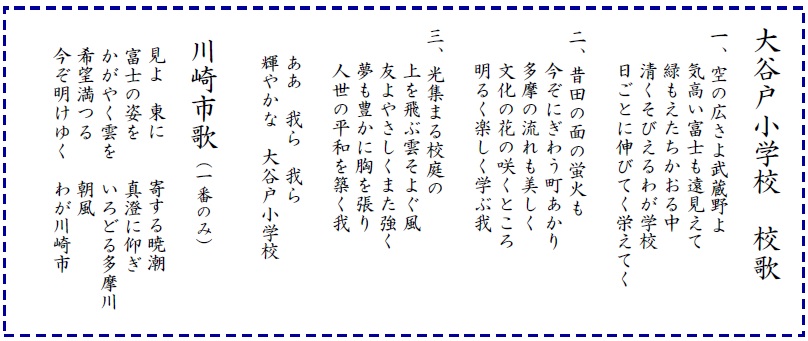 大谷戸小学校　校歌
一、空の広さよ武蔵野よ
気高い富士も遠見えて
緑もえたちかおる中
清くそびえるわが学校
日ごとに伸びてく栄えてく
二、昔田の面の蛍火も
今ぞにぎわう町あかり
多摩の流れも美しく
文化の花の咲くところ
明るく楽しく学ぶ我
三、光集まる校庭の
上を飛ぶ雲そよぐ風
友よやさしくまた強く
夢も豊かに胸を張り
人世の平和を築く我
ああ　我ら　我ら
輝やかな　大谷戸小学校
川崎市歌（一番のみ）
見よ　東に　寄する暁潮
富士の姿を　真澄に仰ぎ
かがやく雲を　いろどる多摩川
希望満つる　朝風
今ぞ明けゆく　わが川崎市